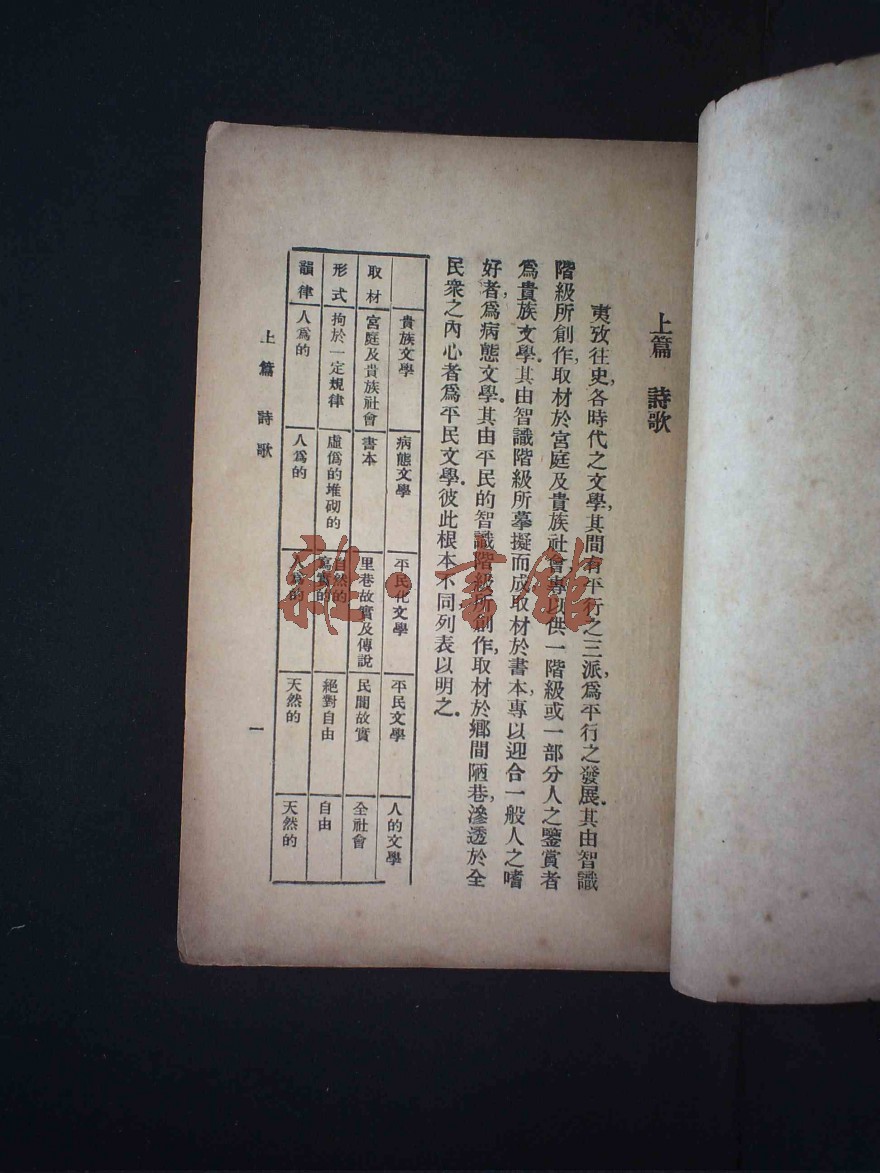 上篇 詩歌
夷攷往史,各時代之文學,其間有平行之三派,爲平行之發展.其由智識
階級所創作,取材於宮庭及貴族社會,專以供一階級或一部分人之鑒賞者
爲貴族文學.其由智識階級所摹擬而成,取材於書本,專以迎合一般人之嗜
好者,爲病態文學.其由平民的智識階級所創作,取材於鄉間陋巷,滲透於全
民衆之內心者爲平民文學.彼此根本不同,列表以明之.
貴族文學 病態文學 平民化文學 平民文學 人的文學
取材 宮庭及貴族社會 書本 里巷故實及傳說 民間故實 全社會
形式 拘於一定規律 虛僞的堆砌的 自然的寫實的 絕對自由 自由
韻律 人爲的 人爲的 人爲的 天然的 天然的
上篇 詩歌
一
雜·書館